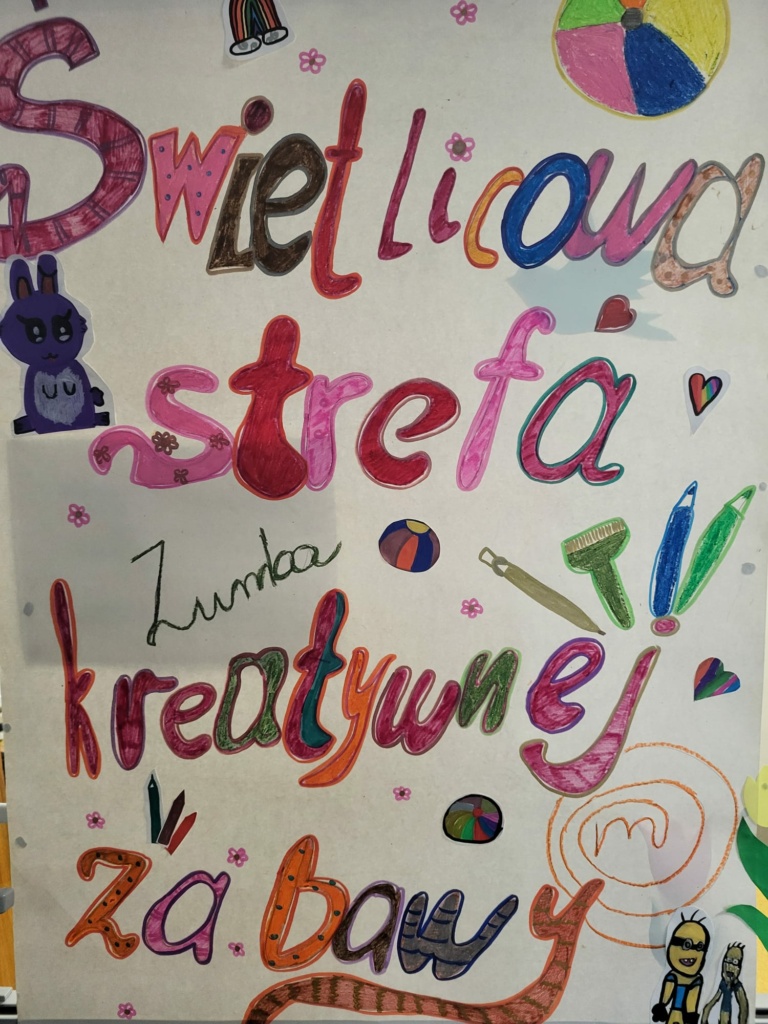 Świetlicowa
strefa
Zumba
kreatywnej
m
zabawy